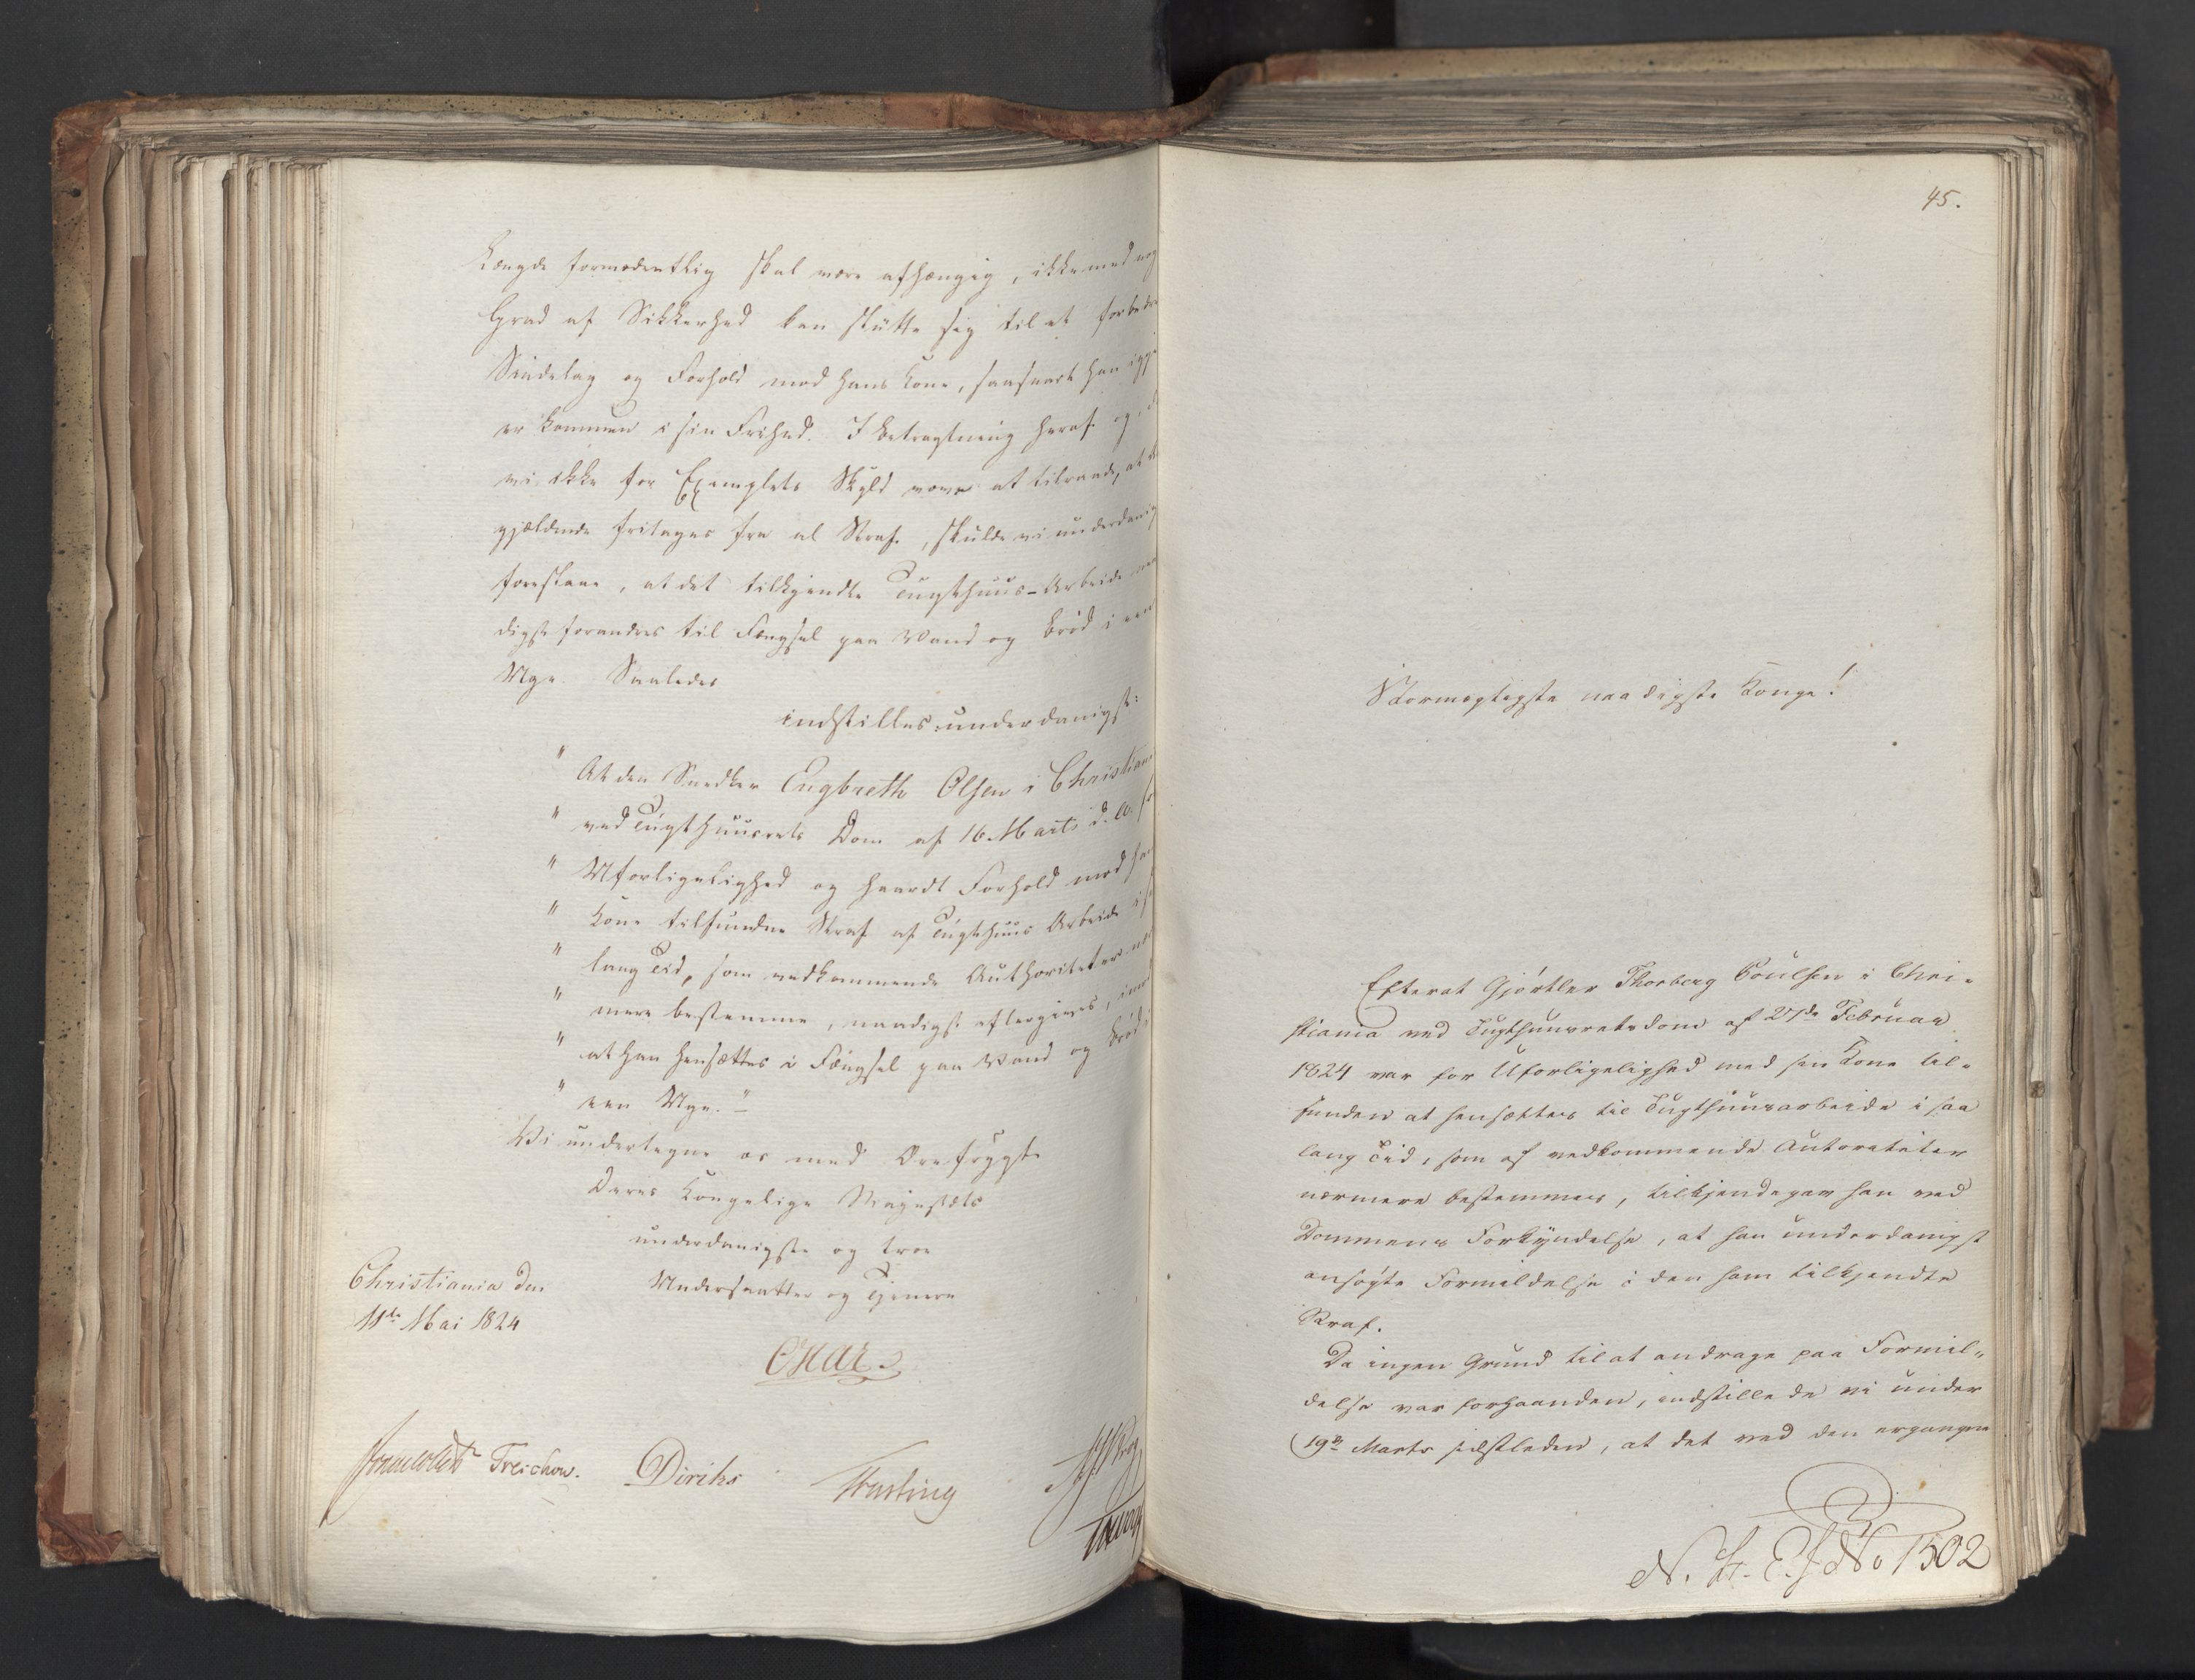 Længde formodentlig skal være afhængig, ikke med nog
Grad af Sikkerhed kan støtte sig til et forbedre
Sindelag og Forhold mod hans Kone, saasnart han igje
er kommen i sin Frihed. I Betragtning heraf og, d
vi ikke for Exemplets Skyld vove at tilraade, at
gjældende fritages fra al Straf, skulde vi underdanig
foreslaae, at det tilkjendte Tugthuus-Arbeide naa
digst forandres til Fængsel paa Vand og Brød i een
Uge. Saaledes
indstilles underdanigst:
" At den Snedker Engbreth Olsen i Christian
" ved Tugthuusrets Dom af 16 Marts d. A. for
" Uforligelighed og haardt Forhold mod han
" Kone tilfundne Straf af Tugthuus Arbeide i s
" lang Tid, som vedkommende Authoriteter næ
" mere bestemme, naadigst eftergives, imod
" at han hensættes i Fængsel paa Vand og Brød i
" een Uge."
Vi undertegne os med Ærefrygt
Deres Kongelige Majestæts
underdanigste og troe
Undersaatter og Tjenere
Christiania den
11te Mai 1824
Oscar
Treschow.
Diriks
Fasting
45.
Stormægtigste naadigste Konge!
Efterat Gjørtler Thorberg Poulsen i Chri-
stiania ved Tugthuusretsdom af 27de Februar
1824 var for Uforligelighed med sin Kone til-
funden at hensættes til Tugthuusarbeide i saa
lang Tid, som af vedkommende Autoriteter
nærmere bestemmes, tilkjendegav han ved
Dommens Forkyndelse, at han underdanigst
ansøgte Formildelse i den ham tilkjendte
Straf.
Da ingen Grund til at andrage paa Formil-
delse var forhaanden, indstillede vi under
19de Marts sidstleden, at det ved den ergangne
N. St. E. J. No 1502